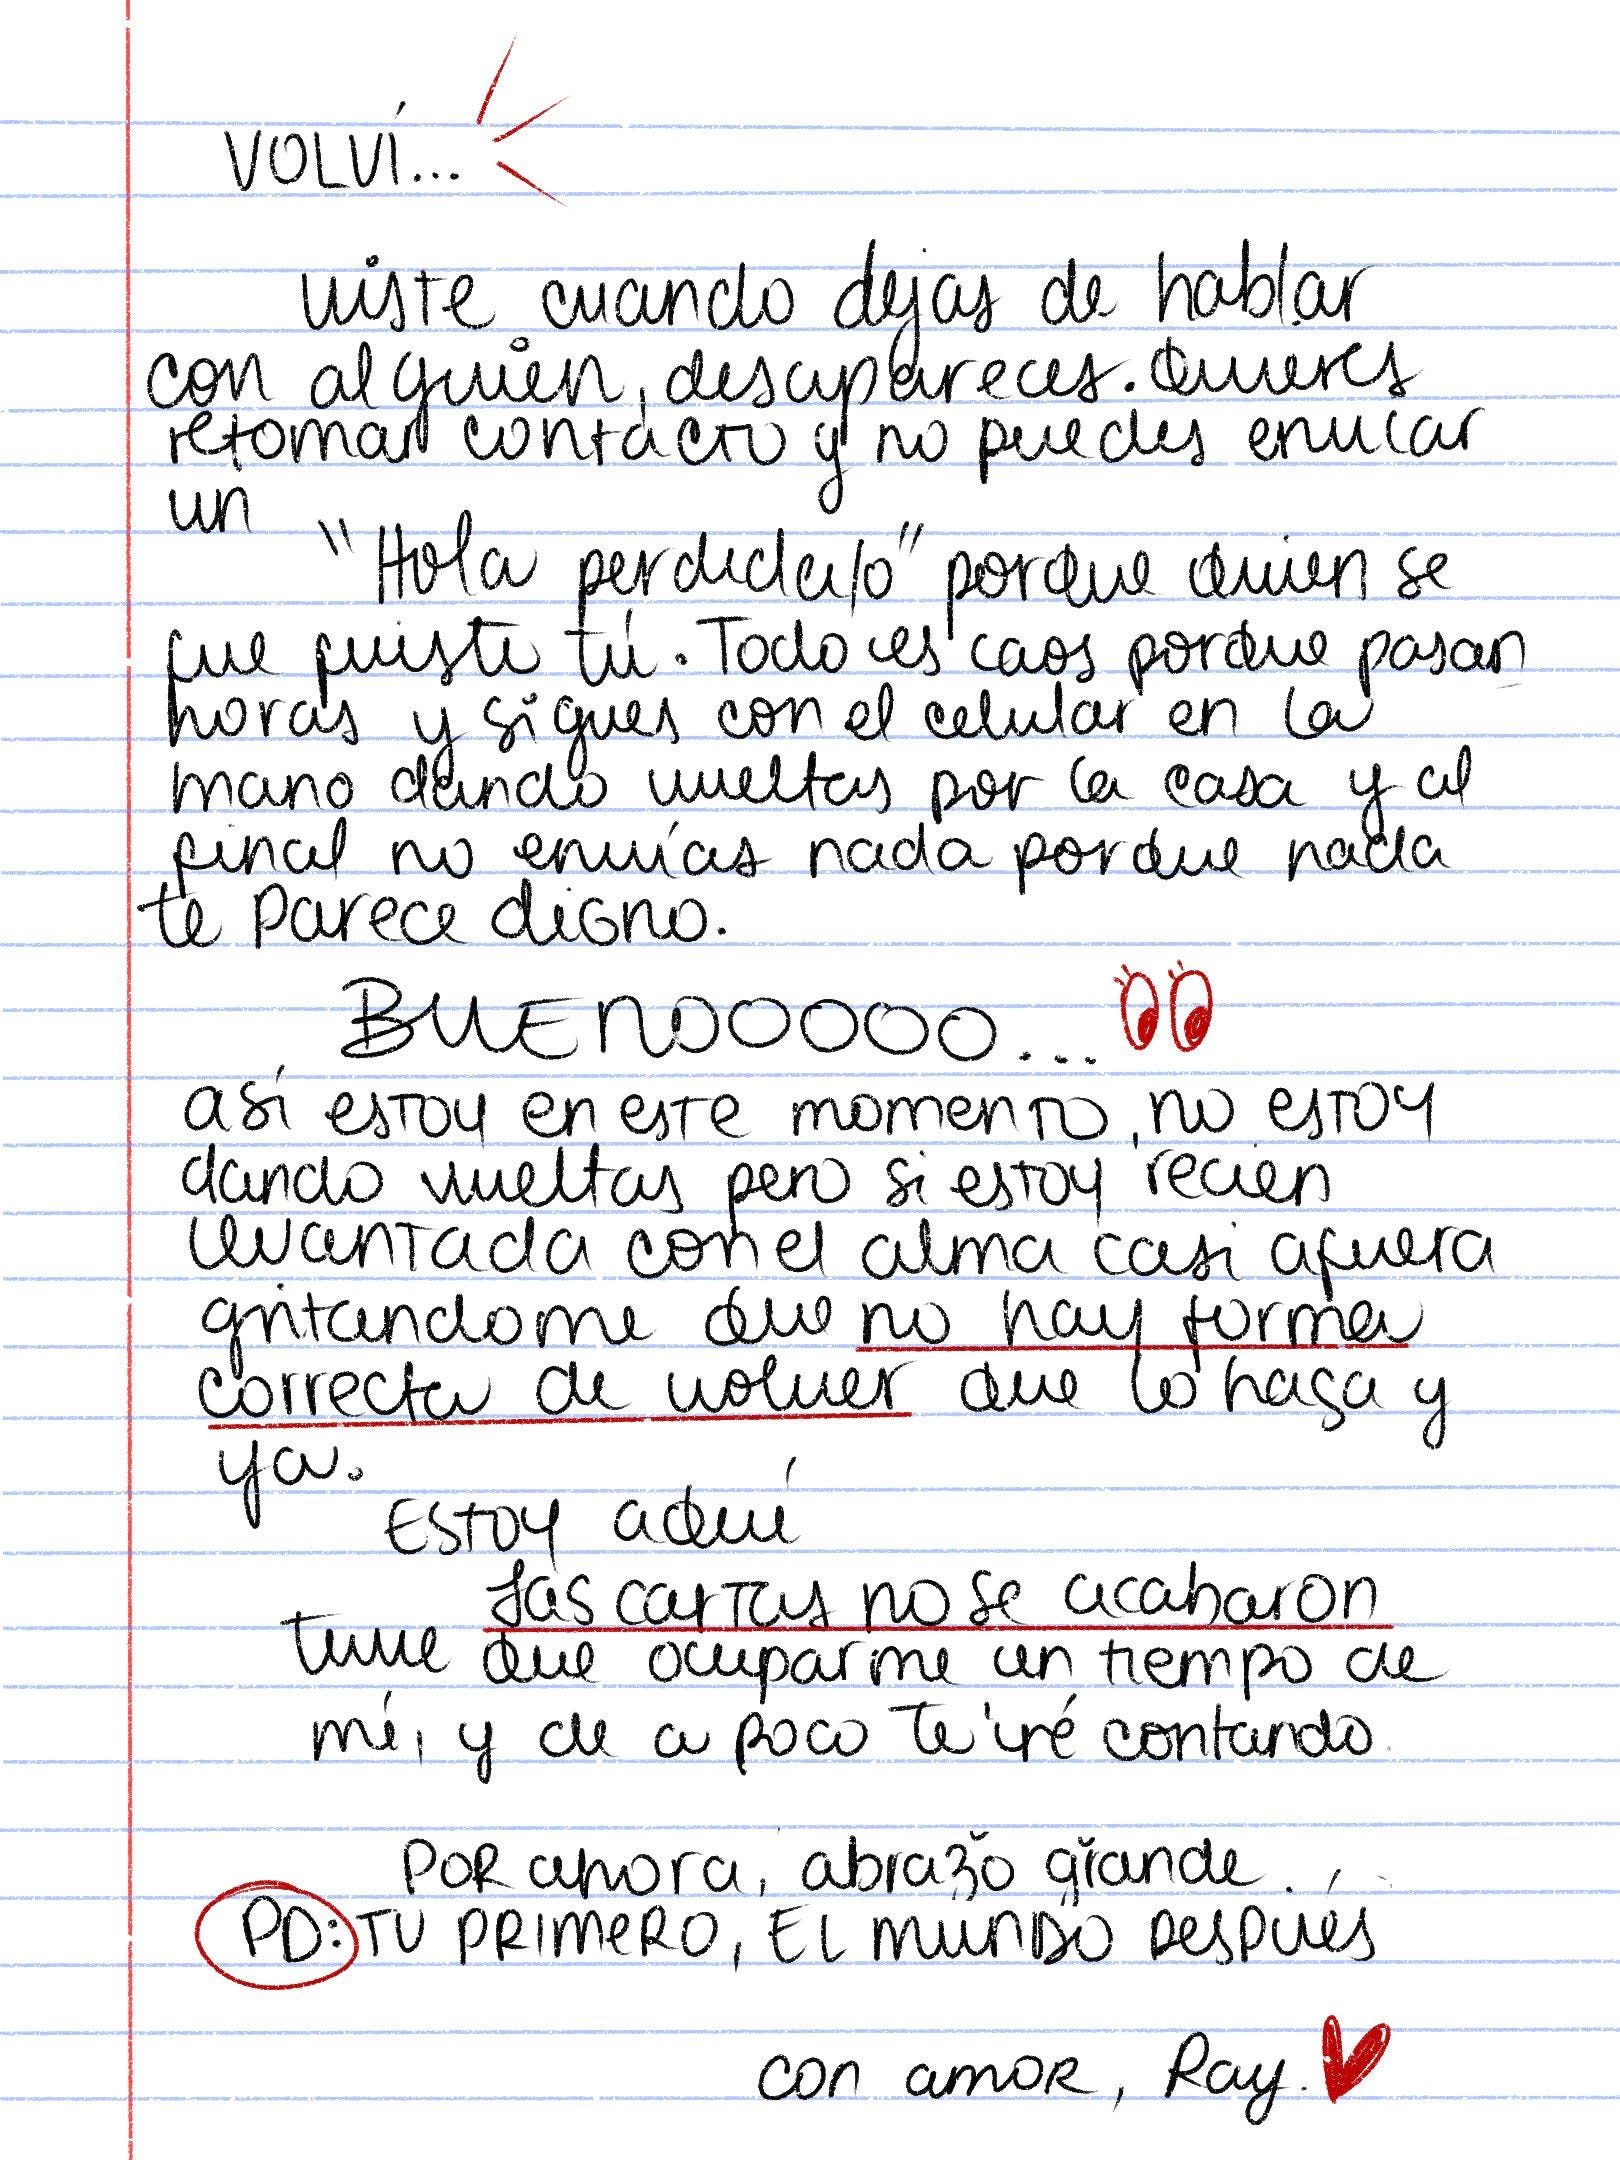 VOLVÍ...
viste cuando dejas de hablar
con alguien, desapareces. Quieres
retomar contacto y no puedes enviar
un
"Hola perdida/o" porque quien se
fue fuiste tú. Todo es caos porque pasan
horas y sigues con el celular en la
mano dando vueltas por la casa y al
final no envías nada porque nada
te parece digno.
BUENOOOOO...
así estoy en este momento, no estoy
dando vueltas pero si estoy recien
levantada con el alma casi afuera
gritandome que no hay forma
correcta de volver que lo haga y
ya.
Estoy aquí
Las cartas no se acabaron
tuve que ocuparme un tiempo de
mí, y de a poco te iré contando.
Por ahora, abrazo grande.
PD: TU PRIMERO, EL MUNDO DESPUÉS
con amor, Ray.